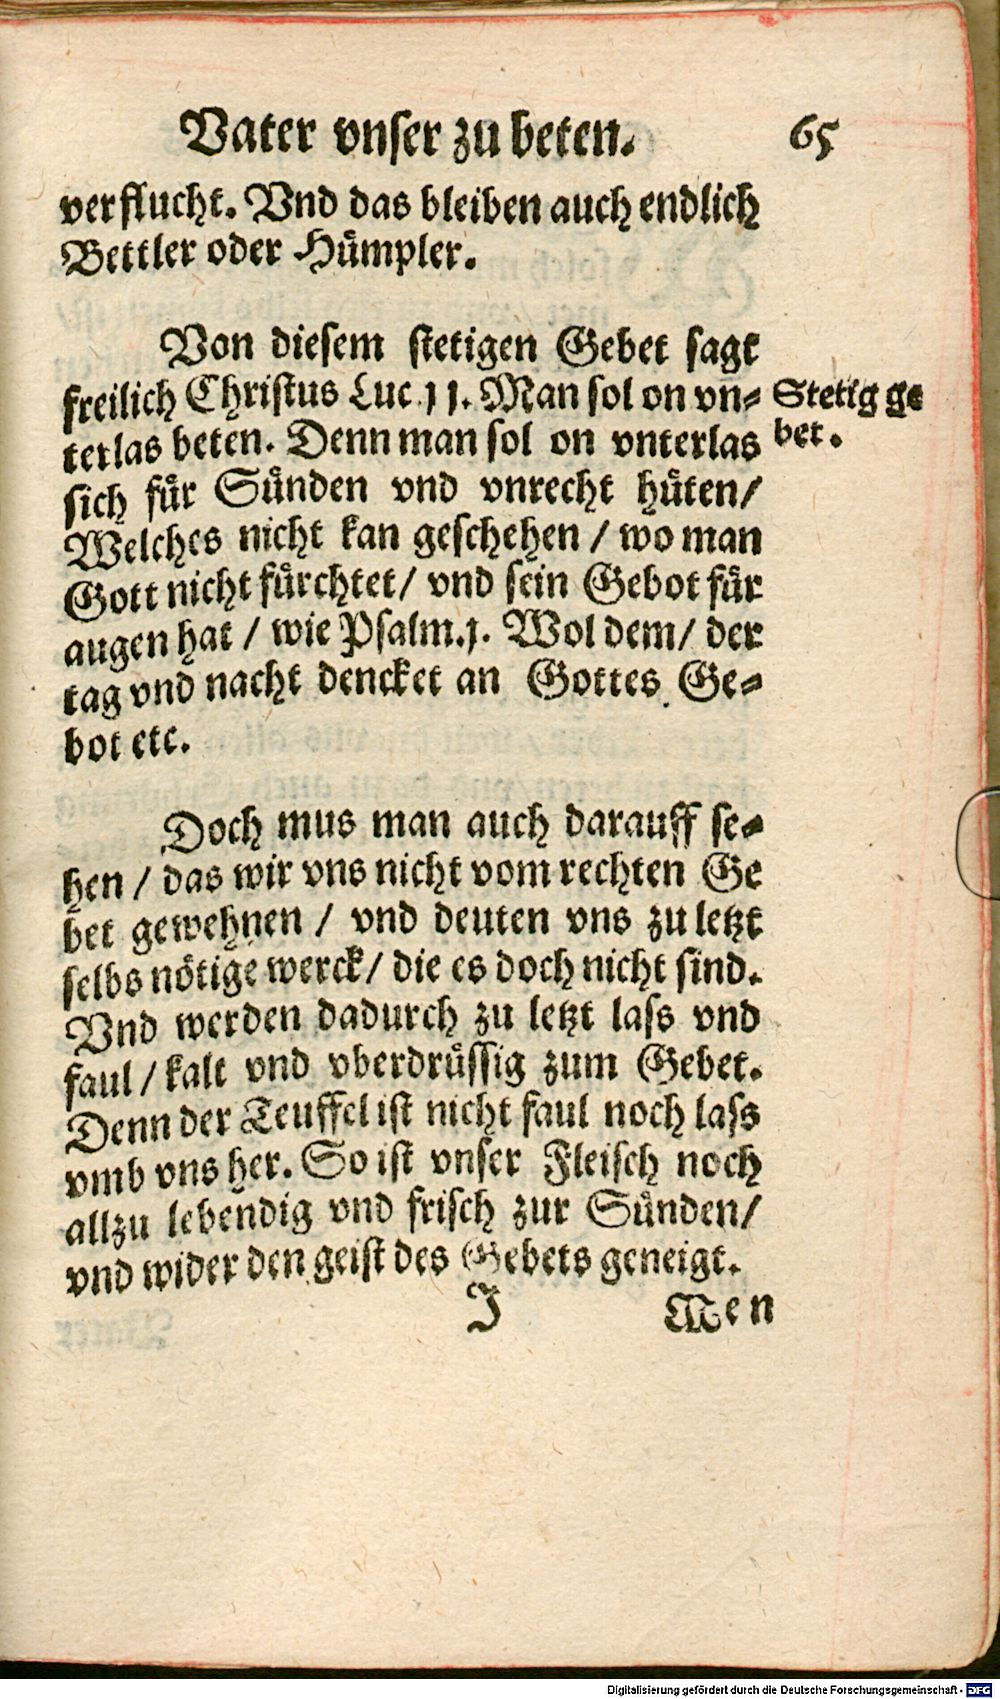 Vater vnser zu beten. 65
verflucht. Vnd das bleiben auch endlich
Bettler oder Hümpler.
Von diesem stetigen Gebet sagt
freilich Christus Luc. 11. Man sol on vn-
terlas beten. Denn man sol on vnterlas
sich für Sünden vnd vnrecht hüten/
Welches nicht kan geschehen / wo man
Gott nicht fürchtet/ vnd sein Gebot für
augen hat / wie Psalm. 1. Wol dem/ der
tag vnd nacht dencket an Gottes Ge-
bot etc.
Stetig ge
bet.
Doch mus man auch darauff se-
hen / das wir vns nicht vom rechten Ge
bet gewehnen / vnd deuten vns zu letzt
selbs nötige werck/ die es doch nicht sind.
Vnd werden dadurch zu letzt lass vnd
faul / kalt vnd vberdrüssig zum Gebet.
Denn der Teuffel ist nicht faul noch lass
vmb vns her. So ist vnser Fleisch noch
allzu lebendig vnd frisch zur Sünden/
vnd wider den geist des Gebets geneigt.
J Men
Digitalisierung gefördert durch die Deutsche Forschungsgemeinschaft - DFG